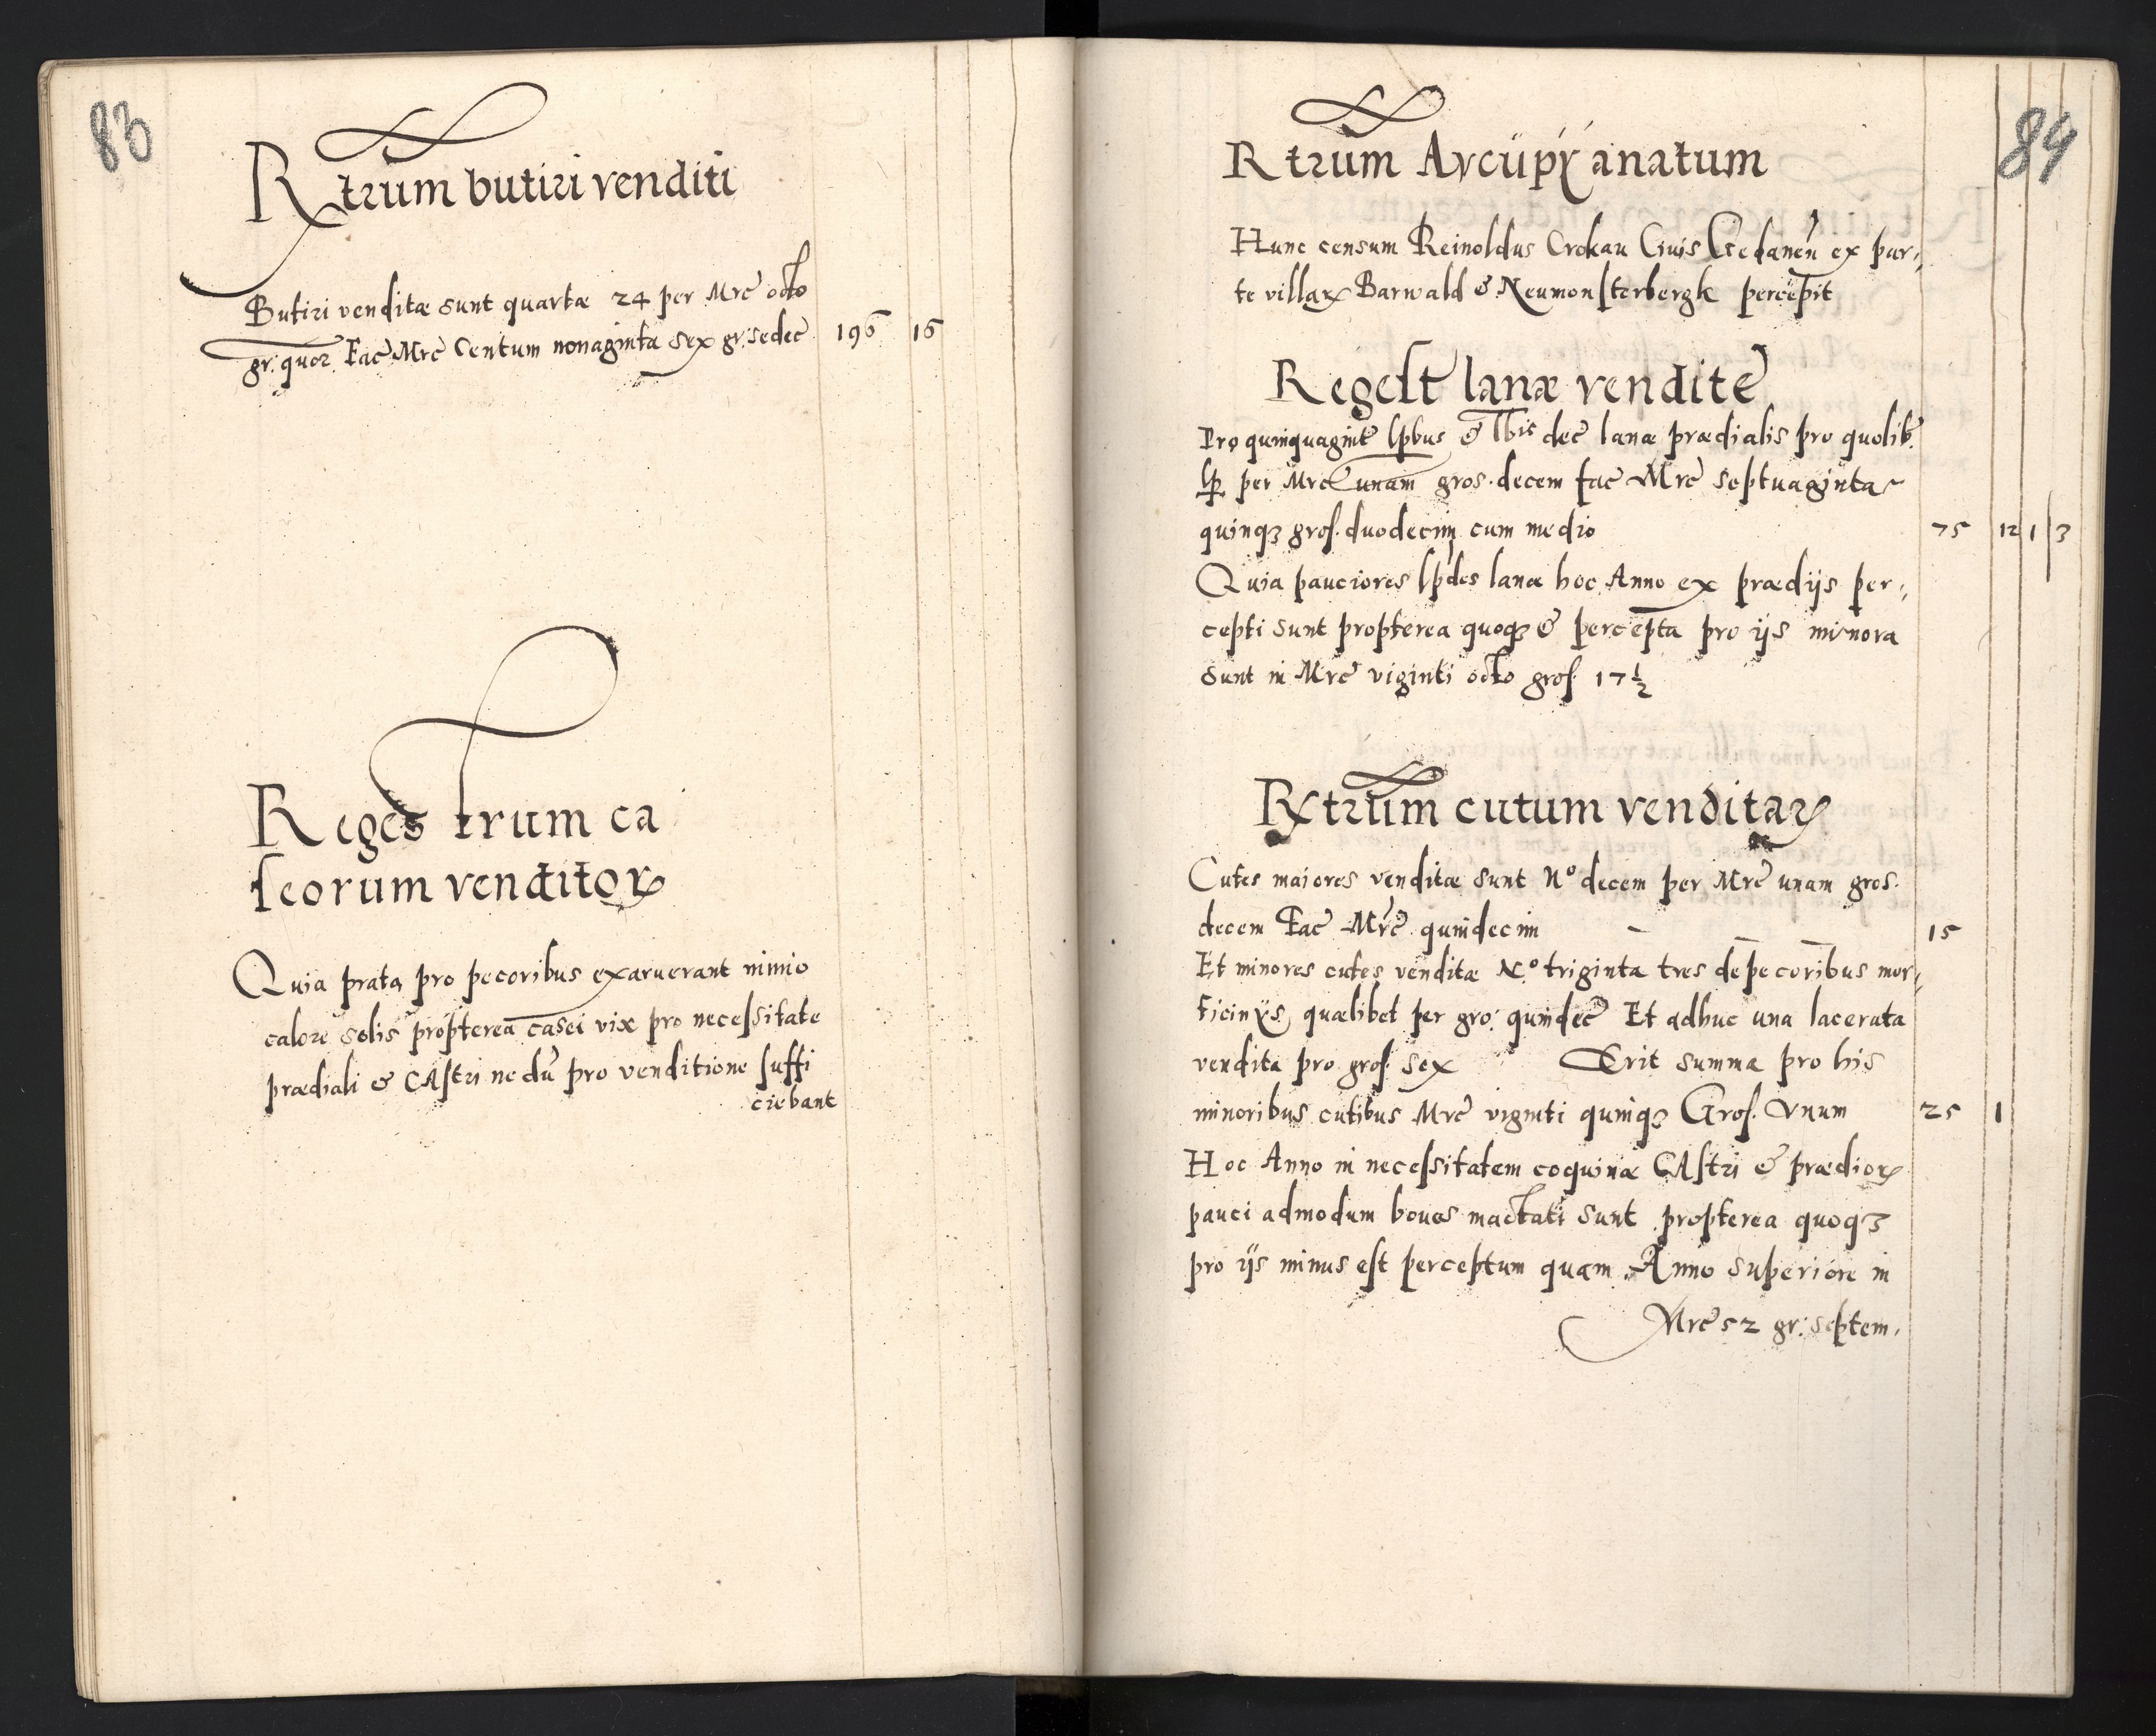 83
Rtrum butiri venditi
Butiri venditæ sunt quartæ 24 per Mrc octo
gr: quor Fac Mrc Centum nonaginta sex gr: sedec 196 16
Regestrum ca
seorum venditor
Quia prata pro pecoribus exaruerant nimio
calore solis propterea casei vix pro necessitate
prædiali & CAstri nedu pro venditione suffi
ciebant
84
Rtrum Aucup anatum
Hunc censum Reinoldus Crokau Civis Gedanen ex par,,
te villar Barwald & Neumonsterbergk percepit
Regest lanæ vendite
Pro quinquagint lpbus & lbis dec lanæ prædialis pro quolib
lp per Mrc unam gros. decem fac Mrc septuaginta
quinq3 gros. duodecim cum medio 75 12 1 3
Quia pauciores lpdes lanæ hoc Anno ex prædijs per,,
cepti sunt propterea quoq3 & percepta pro ijs minora
sunt in Mrc viginti octo gros. 17½
Rtrum cutum venditar
Cutes maiores venditæ sunt No decem per Mrc unam gros.
decem Fac Mrc quindecim 15
Et minores cutes venditæ No triginta tres de pecoribus mor,,
ticinys quælibet per gro: quindec Et adhuc una lacerata
vendita pro gros. sex Erit summa pro his
minoribus cutibus Mrc viginti quinq3 Gros. Vnum 25 1
Hoc Anno in necessitatem coquinæ CAstri & prædior
pauci admodum boues mactati sunt propterea quoq3
pro ijs minus est perceptum quam Anno superiore in
Mrc 52 gr: septem.